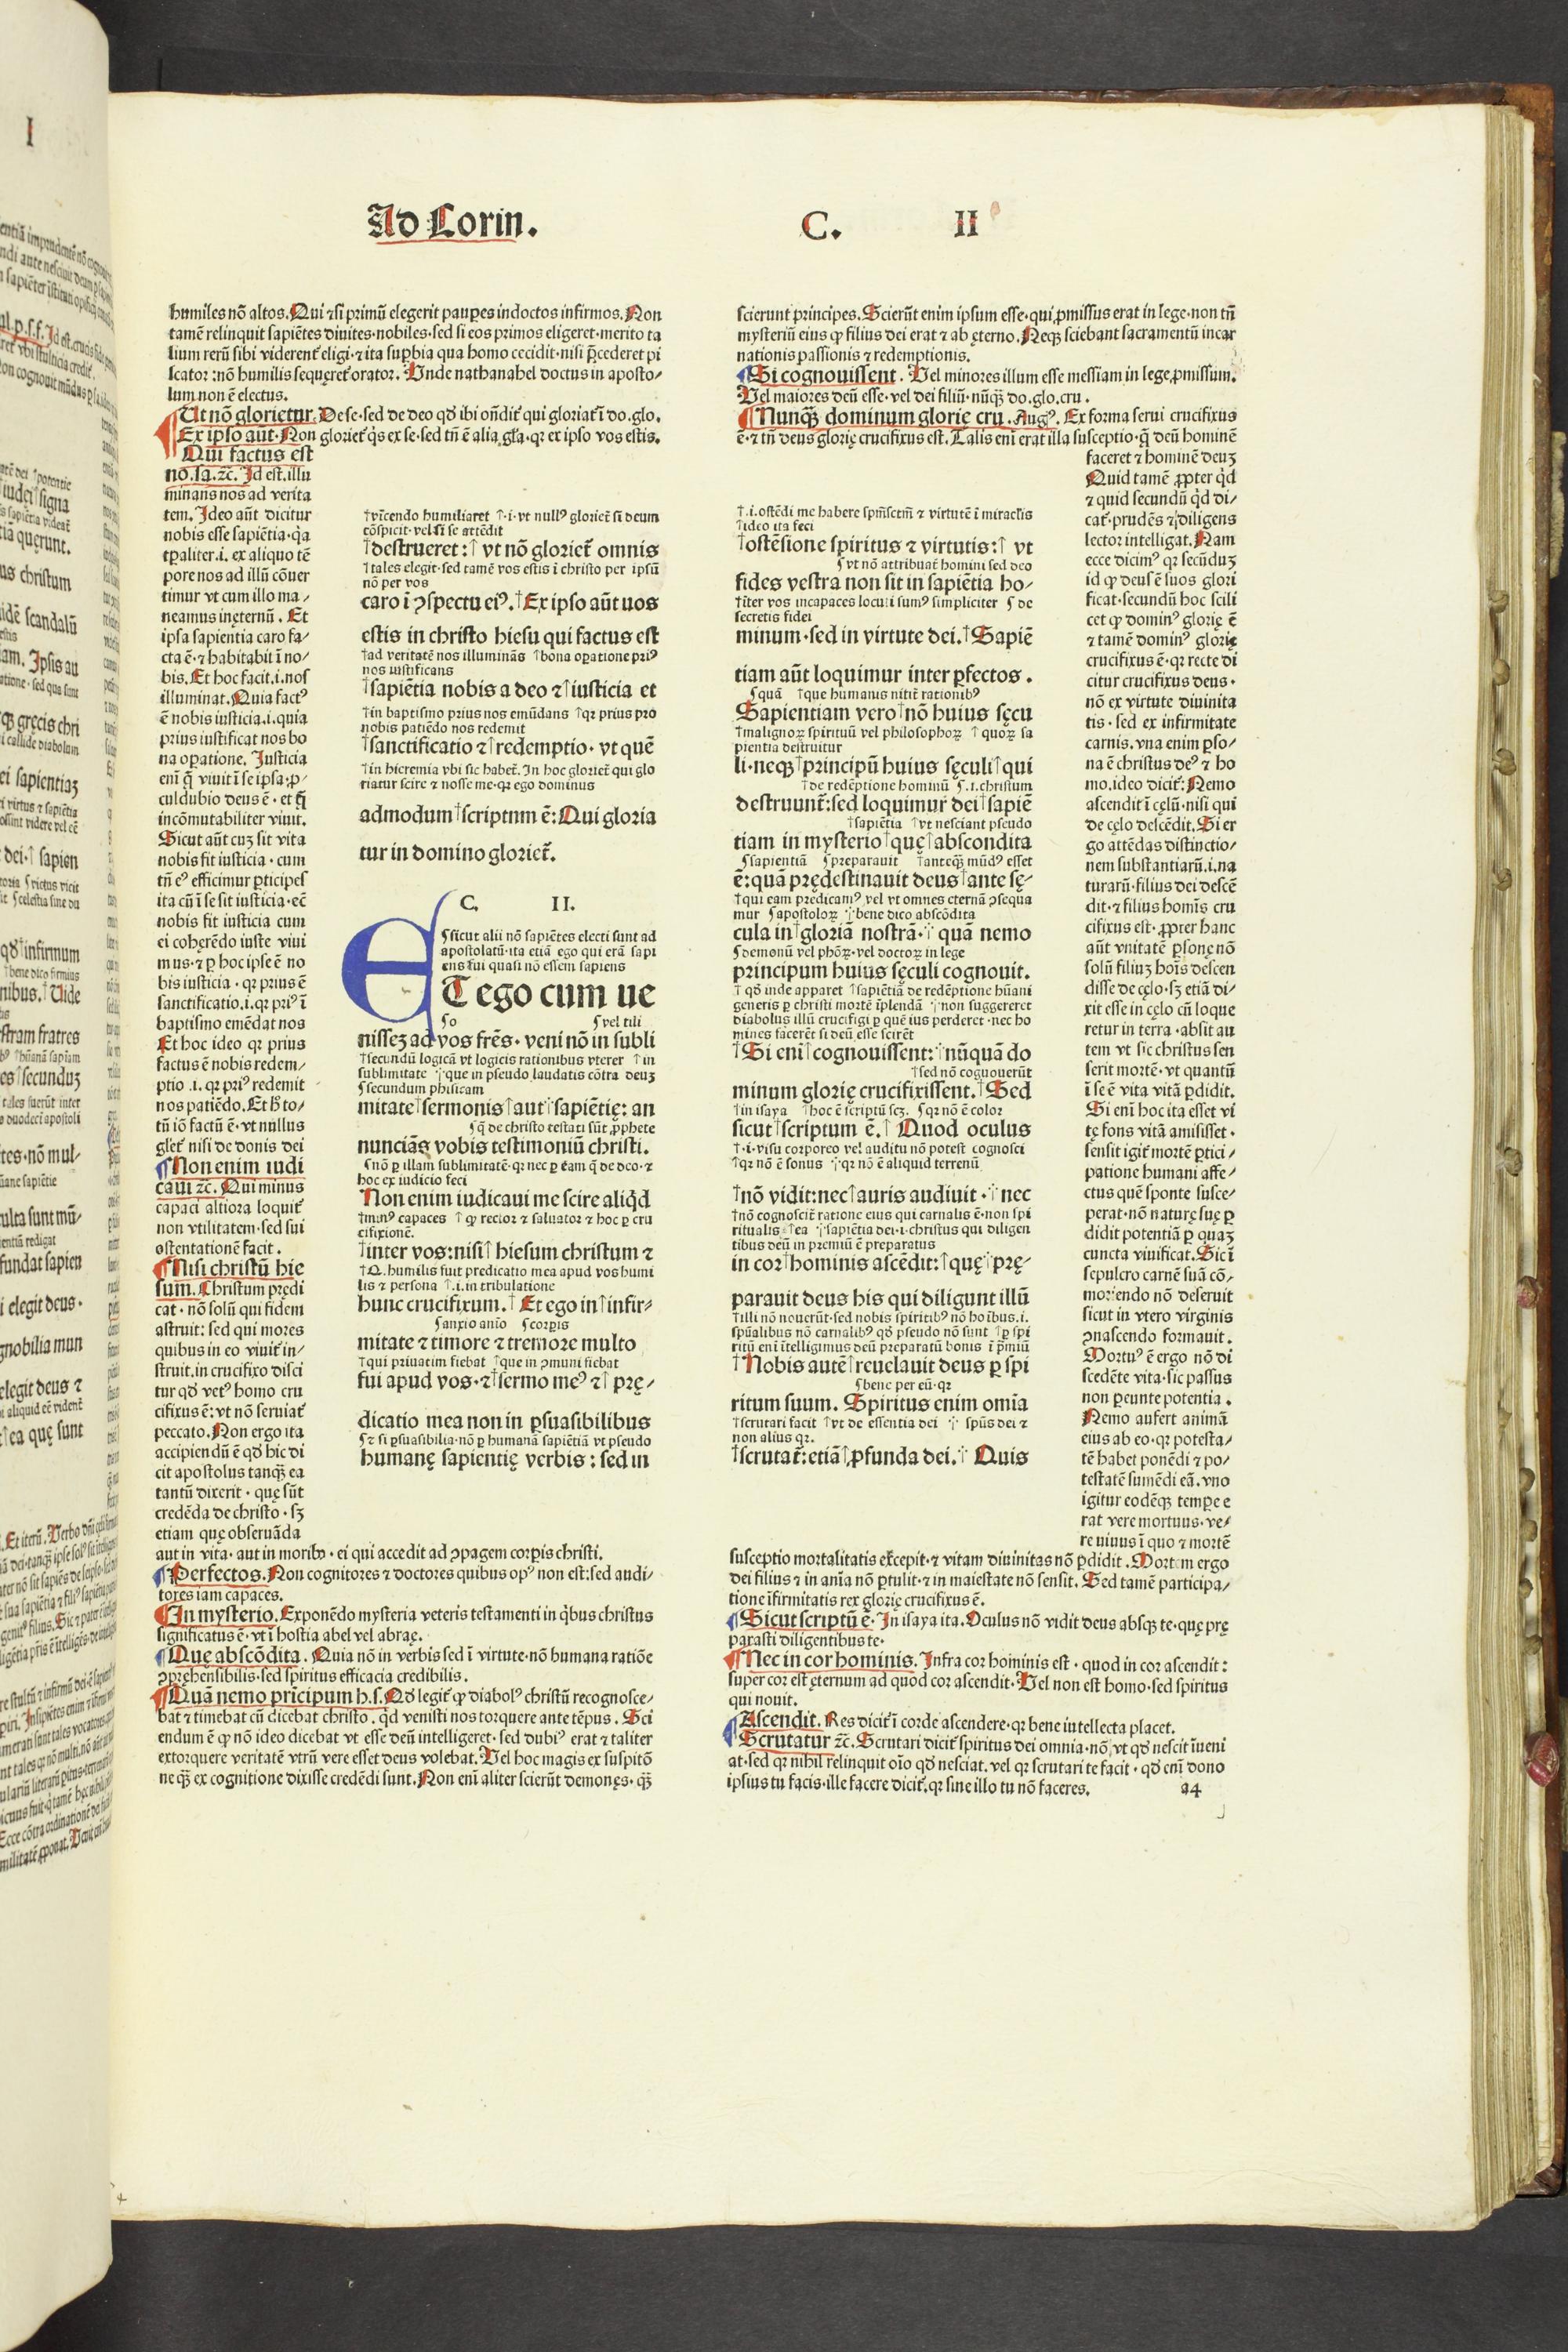 Ad Corin.
C. II
humiles nō altos. Qui ⁊ si primū elegerit paupes indoctos infirmos. Non
tamē relinquit sapiētes diuites·nobiles·sed si eos primos eligeret·merito ta
lium rerū sibi viderent᷑ eligi·⁊ ita supbia qua homo cecidit·nisi p̄cederet pi
scator : nō humilis sequeret᷑ orator. Unde nathanahel doctus in aposto/
lum non ē electus.
Ut nō glorietur. De se·sed de deo qđ ibi ondit᷑ qui gloriat᷑ ī do. glo.
Ex ipso aūt. Non gloriet᷑ q̇s ex se·sed tn̄ ē alia gl̄a·qr ex ipso vos estis.
Qui factus est
no. sa. ⁊c. Id est. illu
minans nos ad verita
tem. Ideo aūt dicitur
nobis esse sapiētia·q̇a
tp̄aliter .i. ex aliquo tē
pore nos ad illū cōuer
timur vt cum illo ma/
neamus in ęternū. Et
ipsa sapientia caro fa/
cta ē·⁊ habitabit ī no/
bis. Et hoc facit .i. nos
illuminat. Quia factꝰ
ē nobis iusticia .i. quia
prius iustificat nos bo
na opatione. Justicia
eni q̄ viuit ī se ipsa·p/
culdubio deus ē·et q̄
incōmutabiliter viuit.
Sicut aūt cuz sit vita
nobis fit iusticia·cum
tn̄ eꝰ efficimur pticipes
ita cū ī se sit iusticia·eē
nobis fit iusticia cum
ei coherēdo iuste viui
mus·⁊ p hoc ipse ē no
bis iusticia·qr prius ē
sanctificatio .i. qr priꝰ ī
baptismo emēdat nos
Et hoc ideo qr prius
factus ē nobis redem/
ptio .i. qr priꝰ redemit
nos patiēdo. Et h to/
tū iō factū ē·vt nullus
glet᷑ nisi de donis dei
Non enim iudi
caui ⁊c. Qui minus
capaci altiora loquit᷑
non vtilitatem·sed sui
ostentationē facit.
Nisi christū hie
sum. Christum prędi
cat·nō solū qui fidem
astruit: sed qui mores
quibus in eo viuit᷑ in/
struit. in crucifixo disci
tur qđ vetꝰ homo cru
cifixus ē: vt nō seruiat᷑
peccato. Non ergo ita
accipiendū ē qđ hic di
cit apostolus tanqꝫ ea
tantū dixerit·quę sūt
credēda de christo·sꝫ
etiam quę obseruāda
aut in vita·aut in moribꝰ·ei qui accedit ad ꝯpagem corpis christi.
Perfectos. Non cognitores ⁊ doctores quibus opꝰ non est: sed audi/
tores iam capaces.
In mysterio. Exponēdo mysteria veteris testamenti in q̇bus christus
significatus ē·vt ī hostia abel vel abraę.
Que abscōdita. Quia nō in verbis sed ī virtute·nō humana ratiōe
ꝯprehensibilis·sed spiritus efficacia credibilis.
Quā nemo prīcipum h. s. Qđ legit᷑ qꝫ diabolꝰ christū recognosce/
bat ⁊ timebat cū dicebat christo. q̇d venisti nos torquere ante tēpus. Sci
endum ē qꝫ nō ideo dicebat vt esse deū intelligeret·sed dubiꝰ erat ⁊ taliter
extorquere veritatē vtrū vere esset deus volebat. Vel hoc magis ex suspitō
ne qꝫ ex cognitione dixisse credēdi sunt. Non eni aliter scierūt demones·qꝫ
†vīcendo humiliaret †·i·vt nullꝰ gloriet᷑ si deum
cōspicit·vel si se attēdit
†destrueret:† vt nō gloriet᷑ omnis
†tales elegit·sed tamē vos estis ī christo per ipsū
nō per vos
caro ī ꝯspectu eiꝰ.†Ex ipso aūt uos
estis in christo hiesu qui factus est
†ad veritatē nos illuminās †bona opatione priꝰ
nos iustificans
†sapiētia nobis a deo ⁊†iusticia et
†in baptismo prius nos emūdans †qr prius pro
nobis patiēdo nos redemit
†sanctificatio ⁊†redemptio·vt quē
†in hieremia vbi sic habet᷑. In hoc gloriet᷑ qui glo
riatur scire ⁊ nosse me·qr ego dominus
admodum†scriptnm ē: Qui gloria
tur in domino gloriet᷑.
C. II.
sicut alii nō sapiētes electi sunt ad
apostolatū·ita etiā ego qui erā sapi
ens fui quasi nō essem sapiens
ET ego cum ue
o vel tili
nissez ad vos fr̄es·veni nō in subli
†secundū logicā vt logicis rationibus vterer †in
sublimitate que in pseudo laudatis cōtra deuz
secundum phisicam
mitate†sermonis†aut†sapiētię: an
q̄ de christo testati sūt prophete
nunciās vobis testimoniū christi.
nō p illam sublimitatē·qr nec p eam q̄ de deo·⁊
hoc ex iudicio feci
Non enim iudicaui me scire aliq̇d
†minꝰ capaces †qꝫ rector ⁊ saluator ⁊ hoc p cru
cifixionē.
†inter vos: nisi† hiesum christum ⁊
†Q. humilis fuit predicatio mea apud vos humi
lis ⁊ persona †.i. in tribulatione
hunc crucifixum.† Et ego in†infir/
anxio aīo corpis
mitate ⁊ timore ⁊ tremore multo
†qui priuatim fiebat †que in ꝯmuni fiebat
fui apud vos·⁊†sermo meꝰ ⁊† prę/
dicatio mea non in psuasibilibus
⁊ si psuasibilia·nō p humanā sapiētiā vt pseudo
humanę sapientię verbis : sed in
scierunt principes. Scierūt enim ipsum esse·qui pmissus erat in lege·non tn̄
mysteriū eius qꝫ filius dei erat ⁊ ab ęterno. Neqꝫ sciebant sacramentū incar
nationis passionis ⁊ redemptionis.
Si cognouissent. Vel minores illum esse messiam in lege pmissum.
Vel maiores deū esse·vel dei filiū·nūqꝫ do. glo. cru.
Nunqꝫ dominum glorię cru. Augꝰ. Ex forma serui crucifixus
ē·⁊ tn̄ deus glorię crucifixus est. Talis eni erat illa susceptio·q̄ deū hominē
faceret ⁊ hominē deuz
Quid tamē ppter q̇d
⁊ quid secundū q̇d di/
cat᷑·prudēs ⁊ diligens
lector intelligat. Nam
ecce dicimꝰ qr secūduz
id qꝫ deus ē suos glori
ficat·secundū hoc scili
cet qꝫ dominꝰ glorię ē
⁊ tamē dominꝰ glorię
crucifixus ē·qr recte di
citur crucifixus deus·
nō ex virtute diuinita
tis·sed ex infirmitate
carnis. vna enim pso/
na ē christus deꝰ ⁊ ho
mo. ideo dicit᷑: Nemo
ascendit ī cęlū·nisi qui
de cęlo descēdit. Si er
go attēdas distinctio/
nem substantiarū .i. na
turarū·filius dei descē
dit·⁊ filius homīs cru
cifixus est·pprer hanc
aūt vnitatē psonę nō
solū filiuz hoīs descen
disse de cęlo·sꝫ etiā di/
xit esse in cęlo cū loque
retur in terra·absit au
tem vt sic christus sen
serit mortē·vt quantū
ī se ē vita vitā pdidit.
Si eni hoc ita esset vi
tę fons vitā amisisset·
sensit igit᷑ mortē ptici/
patione humani affe/
ctus quē sponte susce/
perat·nō naturę suę p
didit potentiā p quaz
cuncta viuificat. Sic ī
sepulcro carnē suā cō/
moriendo nō deseruit
sicut in vtero virginis
ꝯnascendo formauit.
Mortuꝰ ē ergo nō di
scedēte vita·sic passus
non peunte potentia.
Nemo aufert animā
eius ab eo·qr potesta/
tē habet ponēdi ⁊ po/
testatē sumēdi eā. vno
igitur eodēqꝫ tempe e
rat vere mortuus·ve/
re uiuus ī quo ⁊ mortē
susceptio mortalitatis excepit·⁊ vitam diuinitas nō pdidit. Mortem ergo
dei filius ⁊ in anīa nō ptulit·⁊ in maiestate nō sensit. Sed tamē participa/
tione īfirmitatis rex glorię crucifixus ē.
Sicut scriptū ē. In isaya ita. Oculus nō vidit deus absqꝫ te·quę prę
parasti diligentibus te·
Nec in cor hominis. Infra cor hominis est·quod in cor ascendit:
super cor est ęternum ad quod cor ascendit·Vel non est homo·sed spiritus
qui nouit.
Ascendit. Res dicit᷑ ī corde ascendere·qr bene intellecta placet.
Scrutatur ⁊c. Scrutari dicit᷑ spiritus dei omnia·nō vt qđ nescit īueni
at·sed qr nihil relinquit oīo qđ nesciat. vel qr scrutari te facit·qđ eni dono
ipsius tu facis·ille facere dicit᷑. qr sine illo tu nō faceres.
a4
†.i. ostēdi me habere spm̄sctm̄ ⁊ virtutē ī miraclis
†ideo ita feci
†ostēsione spiritus ⁊ virtutis:† vt
vt nō attribuat᷑ homini sed deo
fides vestra non sit in sapiētia ho/
†iter vos incapaces locuti sumꝰ simpliciter de
secretis fidei
minum·sed in virtute dei.†Sapiē
tiam aūt loquimur inter pfectos.
quā †que humanis nitit᷑ rationibꝰ
Sapientiam vero†nō huius sęcu
†malignoꝝ spirituū vel philosophoꝝ †quoꝝ sa
pientia destruitur
li·neqꝫ†principū huius sęculi†qui
†de redēptione hominū .i. christum
destruunt᷑: sed loquimur dei†sapiē
†sapiētia †vt nesciant pseudo
tiam in mysterio†quę†abscondita
sapientiā preparauit †anteqꝫ mūdꝰ esset
ē: quā prędestinauit deus†ante sę/
†qui eam predicamꝰ vel vt omnes eternā ꝯsequa
mur apostoloꝝ bene dico abscōdita
cula in†gloriā nostrā· quā nemo
demonū vel phōꝝ·vel doctoꝝ in lege
principum huius sęculi cognouit.
†qđ inde apparet †sapiētiā de redēptione hūani
generis p christi mortē īplendā non suggereret
diabolus illū crucifigi p quē ius perderet·nec ho
mines facerēt si deū esse scirēt
†Si eni†cognouissent: nūquā do
†sed nō cognouerūt
minum glorię crucifixissent.†Sed
†in isaya †hoc ē scriptū scꝫ. qr nō ē color
sicut†scriptum ē.† Quod oculus
†·i·visu corporeo vel auditu nō potest cognosci
†qr nō ē sonus qr nō ē aliquid terrenū
†nō vidit: nec†auris audiuit· nec
†nō cognoscit᷑ ratione eius qui carnalis ē·non spi
ritualis †ea sapiētia dei·i·christus qui diligen
tibus deū in premiū ē preparatus
in cor†hominis ascēdit:†quę prę/
parauit deus his qui diligunt illū
†illi nō nouerūt·sed nobis spiritibꝰ nō hoībus .i.
spūalibus nō carnalibꝰ qđ pseudo nō sunt †p spi
ritū eni ītelligimus deū preparatū bonis ī pmiū
†Nobis autē†reuelauit deus p spi
bene per eū·qr
ritum suum. Spiritus enim omīa
†scrutari facit †vt de essentia dei spūs dei ⁊
non alius qr.
†scrutat᷑: etiā†pfunda dei. Quis